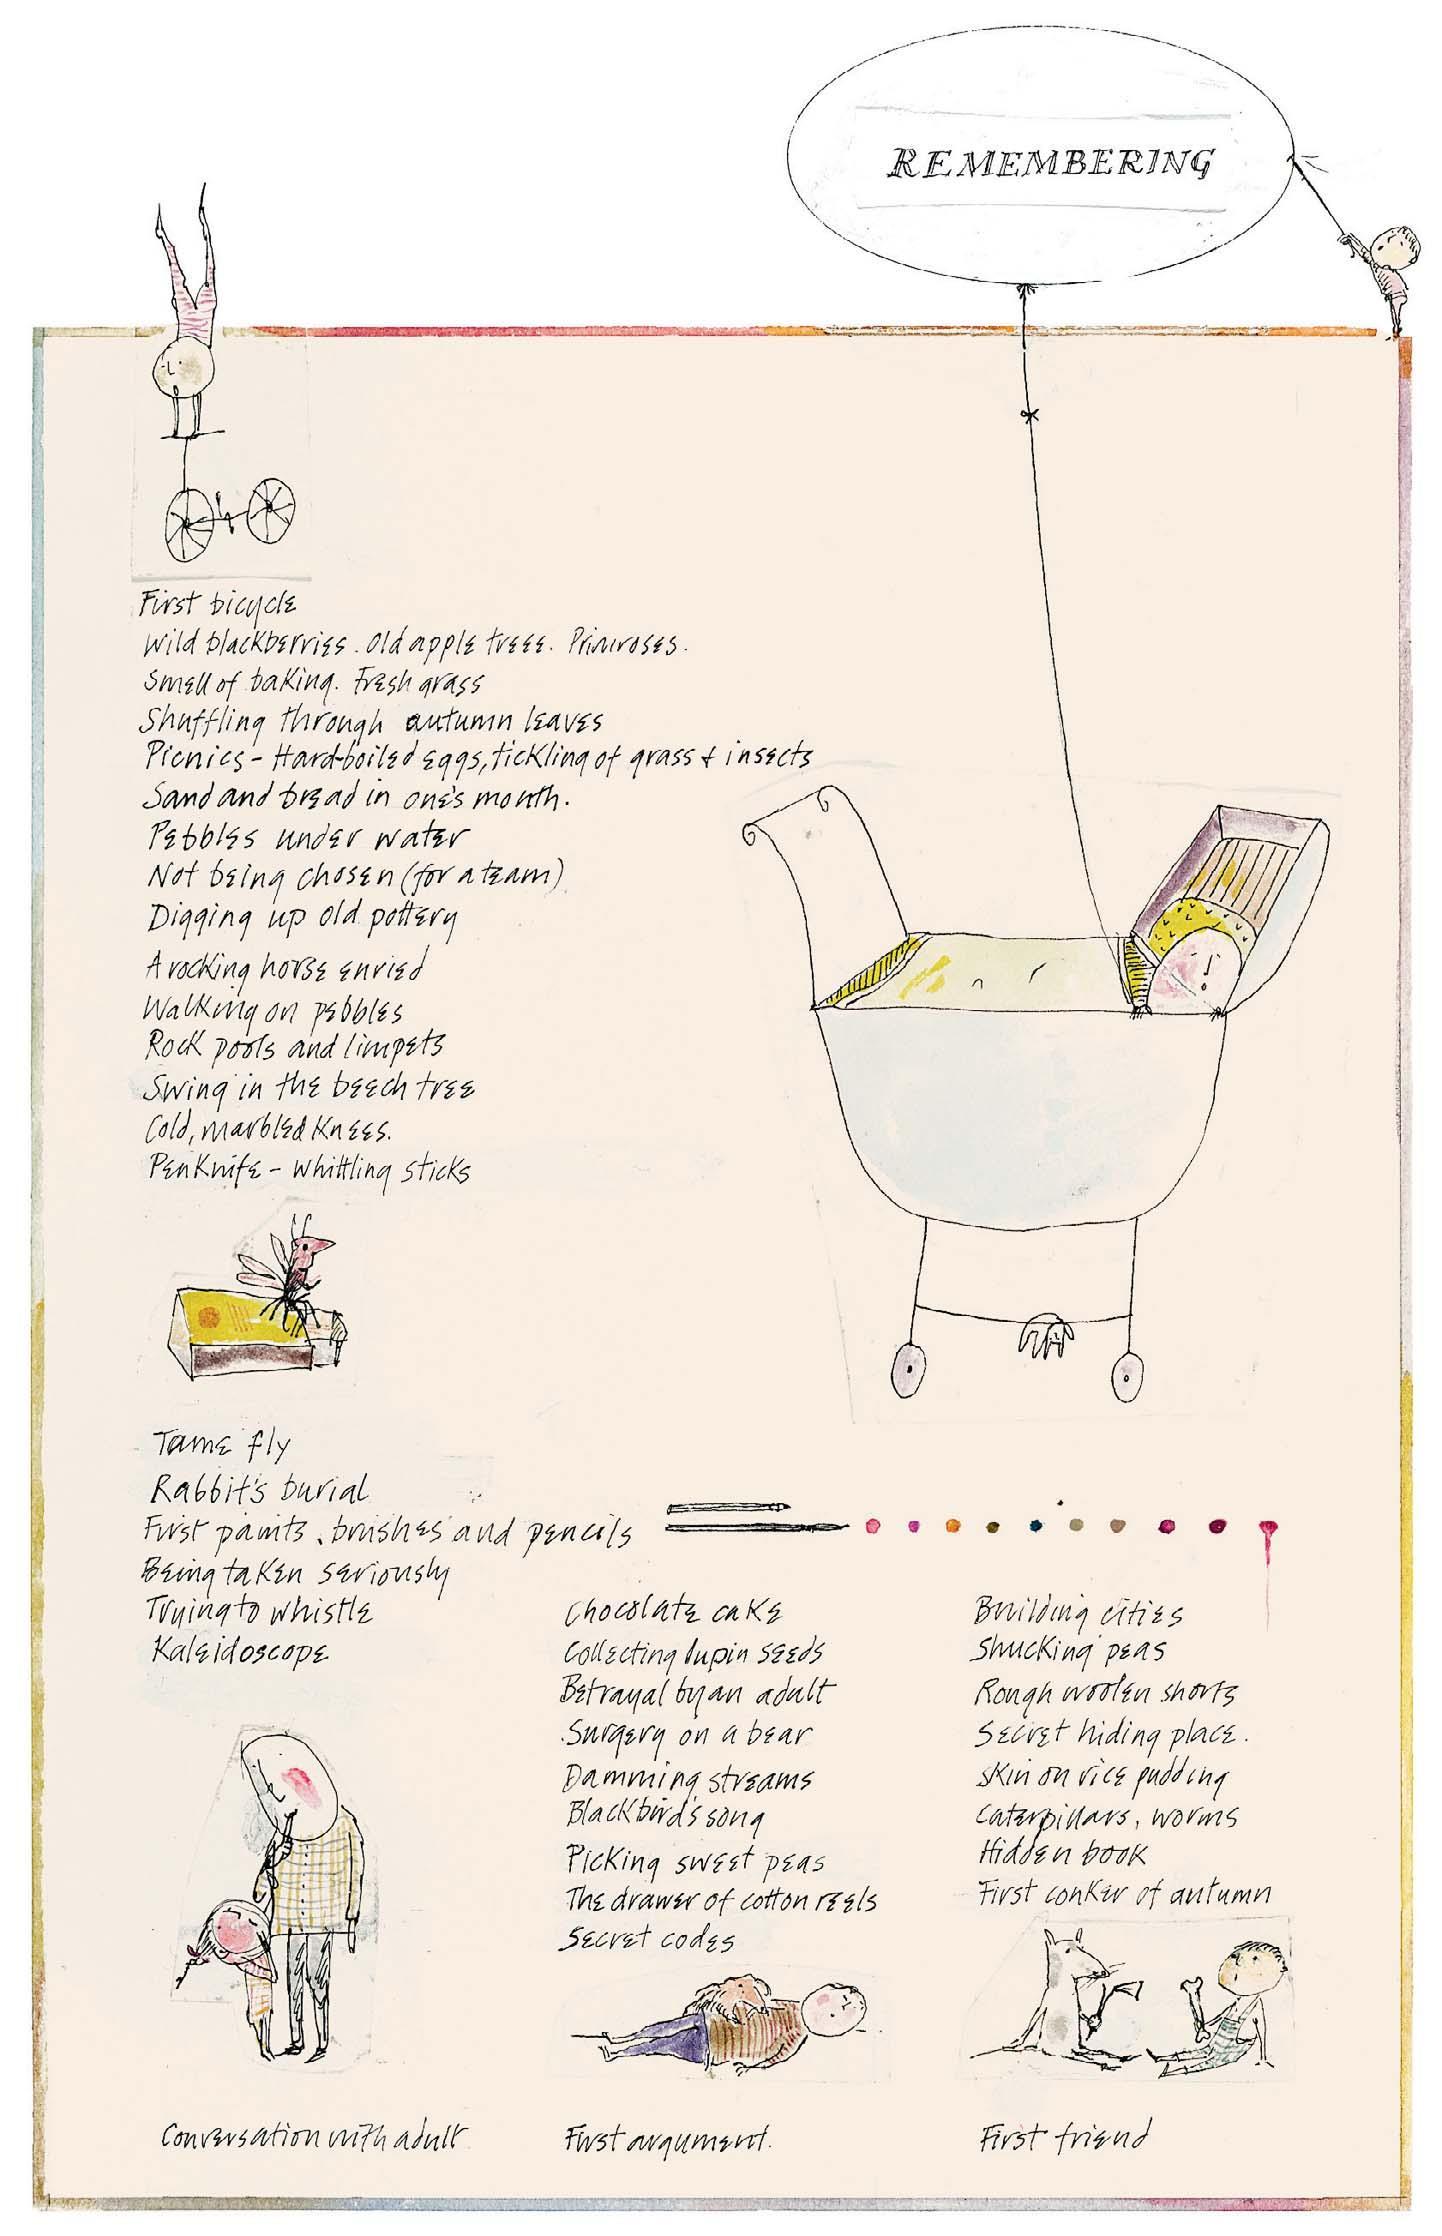 REMEMBERING
First bicycle
Wild blackberries. Old apple trees. Primroses.
Smell of baking. Fresh grass
Shuffling through autumn leaves
Picnics - Hard-boiled eggs, tickling of grass & insects
Sand and bread in one's mouth.
Pebbles under water
Not being chosen (for a team)
Digging up old pottery
A rocking horse envied
Walking on pebbles
Rock pools and limpets
Swing in the beech tree
Cold, marbled knees.
Penknife - whittling sticks
Tame fly
Rabbit's burial
First paints, brushes and pencils
Being taken seriously
Trying to whistle
Kaleidoscope
Conversation with adult
Chocolate cake
Collecting lupin seeds
Betrayal by an adult
Surgery on a bear
Damming streams
Blackbird's song
Picking sweet peas
The drawer of cotton reels
Secret codes
First argument.
Building cities
Shucking peas
Rough woolen shorts
Secret hiding place.
Skin on rice pudding
Caterpillars, worms
Hidden book
First conker of autumn
First friend